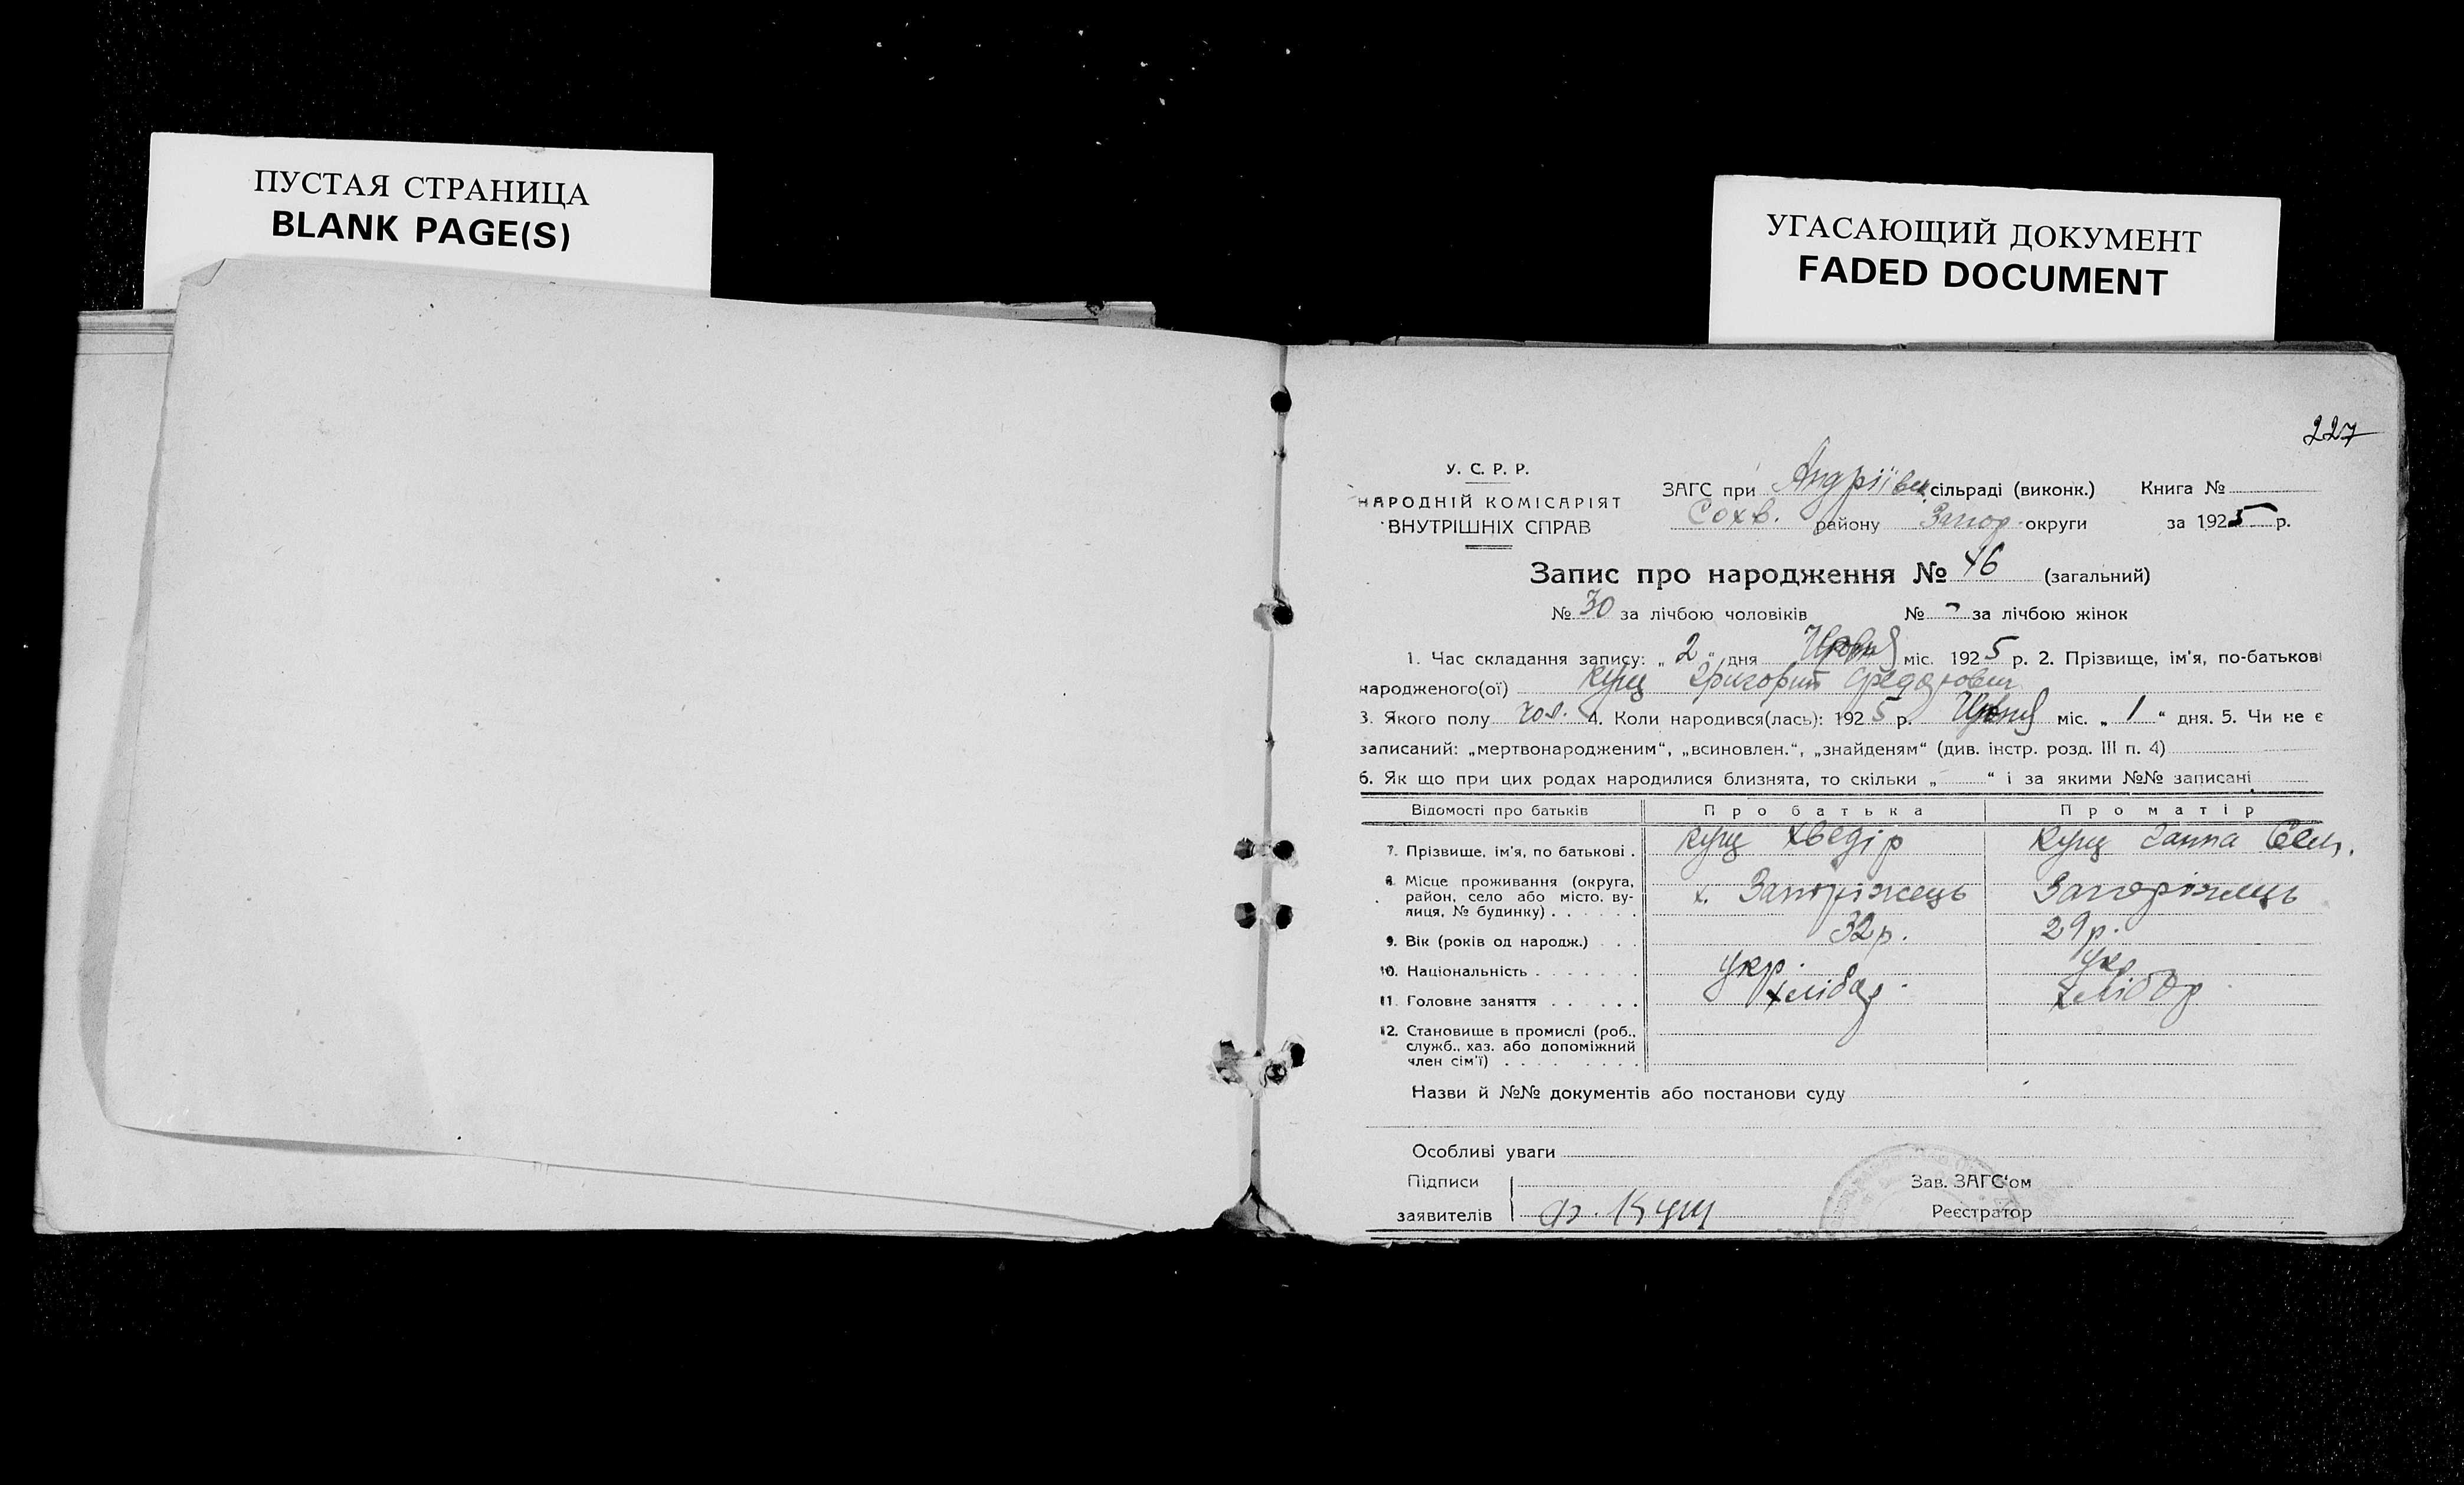 ПУСТАЯ СТРАНИЦА
BLANK PAGE(S)
УГАСАЮЩИЙ ДОКУМЕНТ
FADED DOCUMENT
227
У. С. Р. Р.
НАРОДНІЙ КОМІСАРІЯТ
ВНУТРІШНІХ СПРАВ
ЗАГС при Андріївск. сільраді (виконк.) Книга №
Сохв. району Запор. округи за 1925 р.
Запис про народження № 46 (загальний)
№ 30 за лічбою чоловіків № - за лічбою жінок
1. Час складання запису: „2“ дня міс. 1925 р. 2. Прізвище, ім'я, по-батькові
народженого(ої) Кущ Григорий
3. Якого полу чол. 4. Коли народився(лась): 1925 р. міс. „1“ дня. 5. Чи не є
записаний: „мертвонародженим“, „всиновлен.“, „знайденям“ (див. інстр. розд. III п. 4)
6. Як що при цих родах народилися близнята, то скільки „ “ і за якими №№ записані
Відомості про батьків Про батька Про матір
7. Прізвище, ім'я, по батькові . Кущ Хведір Кущ Ганна
8. Місце проживання (округа, район, село або місто, вулиця, № будинку) . . . . . . х. Запоріжець Запоріжець
9. Вік (років од народж.) . . . 32 р. 29 р.
10. Національність . . . . . . . укр. укр.
11. Головне заняття . . . . . . хлібор. хлібор
12. Становище в промислі (роб., служб., хаз. або допоміжний член сім'ї) . . . . . . . .
Назви й №№ документів або постанови суду
Особливі уваги
Підписи Зав. ЗАГС'ом
заявителів Ф. Кущ Реєстратор